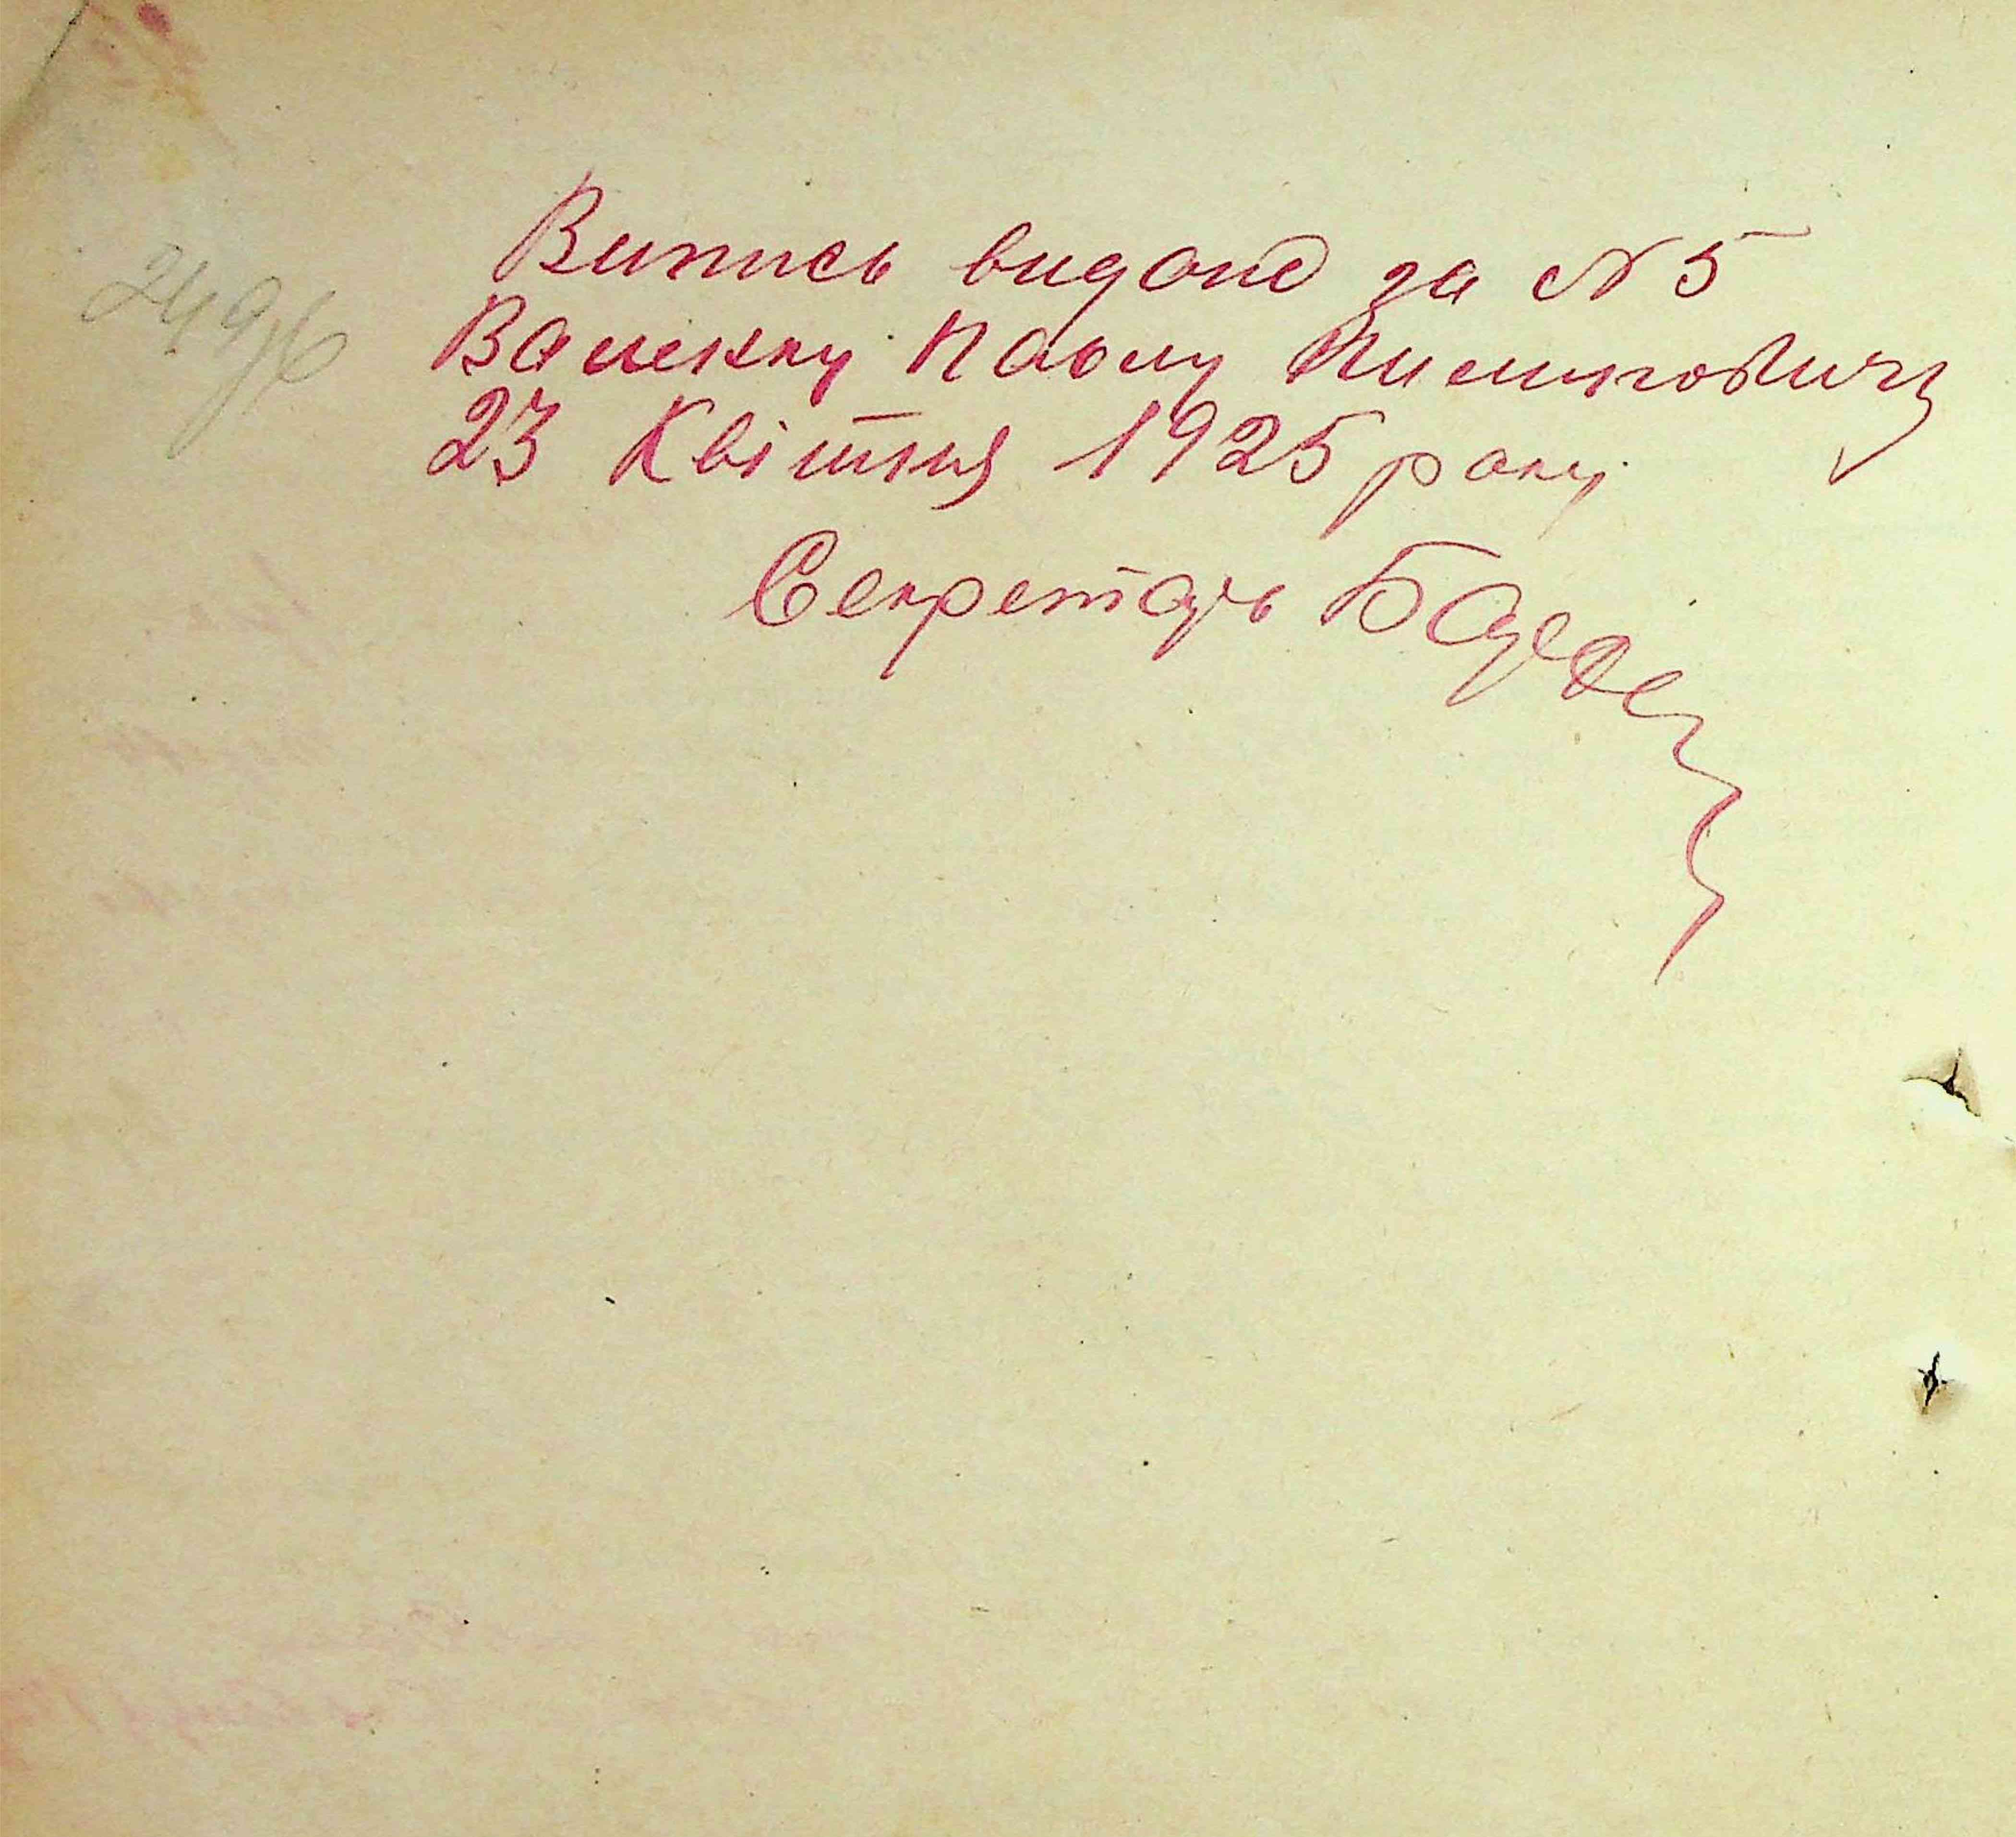 Випись видано за № 5
Ваценку Павлу Пилиповичу
23 Квітня 1925 року
Секретарь